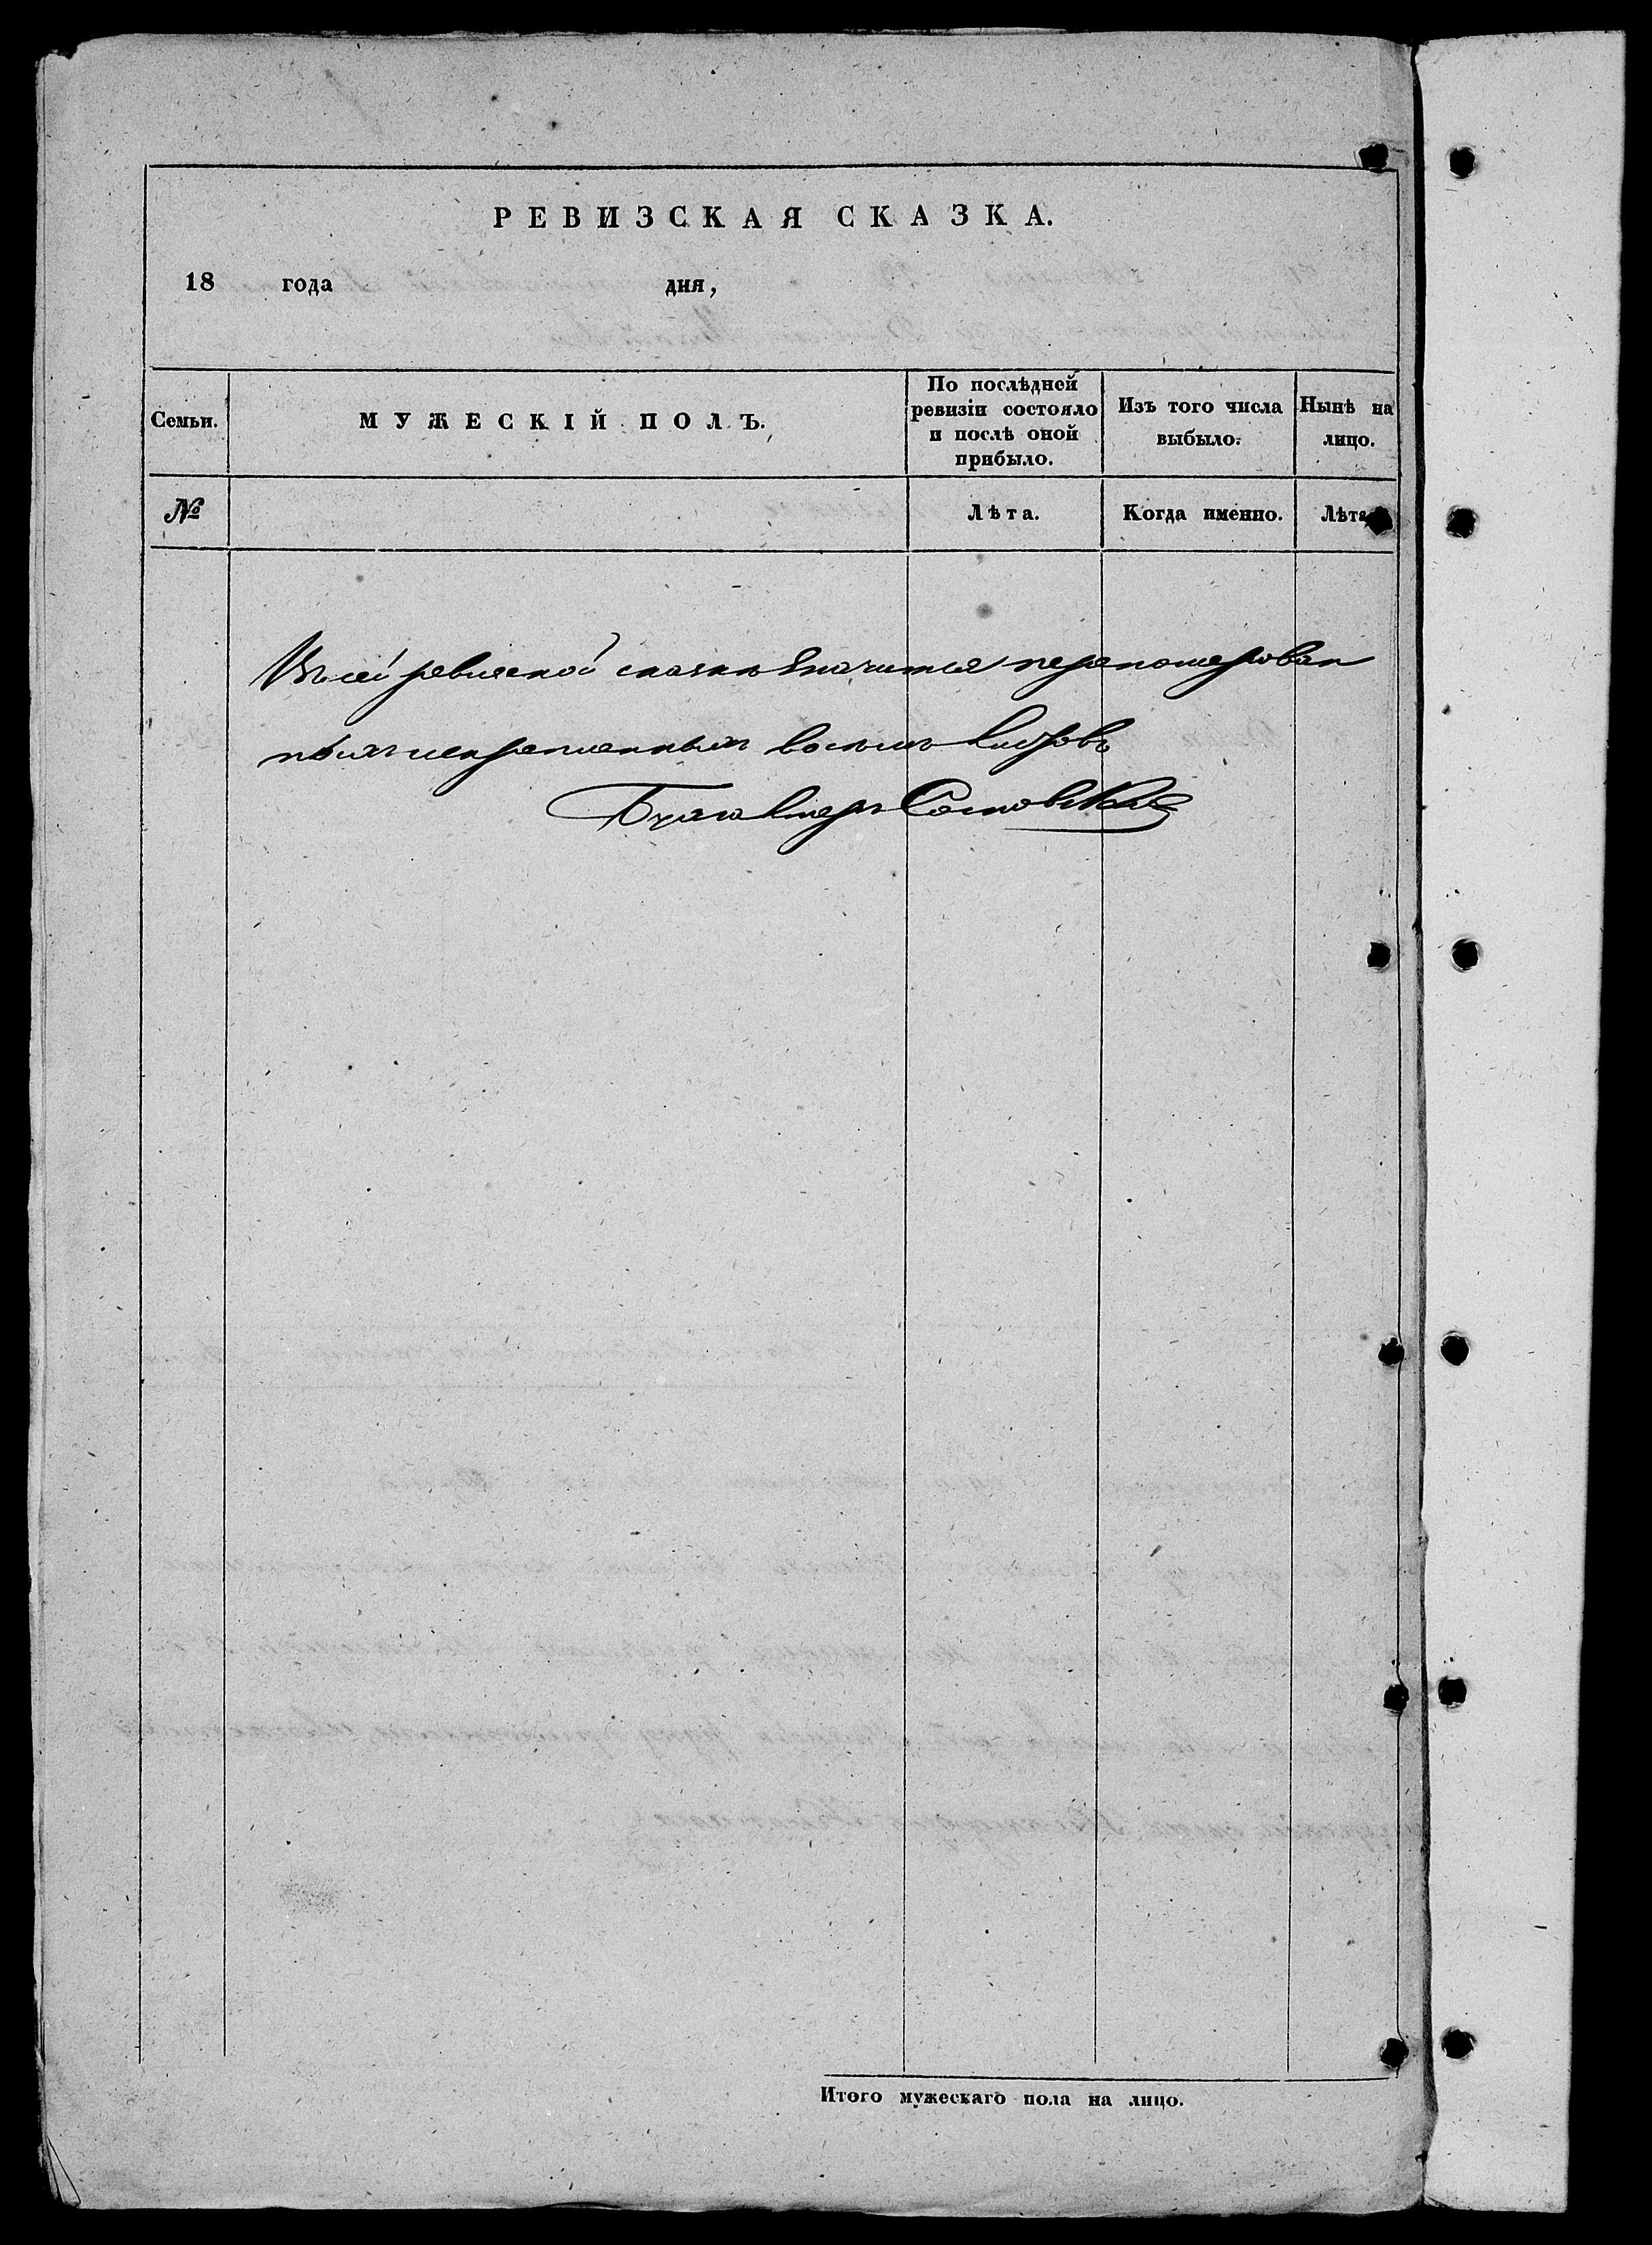 РЕВИЗСКАЯ СКАЗКА.
18 года дня,
Семьи.
МУЖЕСКІЙ ПОЛЪ.
По послѣдней
ревизіи состояло
и послѣ оной
прибыло.
Изъ того числа
выбыло.
Нынѣ на
лицо.
№
Лѣта.
Когда именно.
Лѣта
Въ сей ревизской сказкѣ значится перенумерован
восемь листовъ
Бухгалтеръ
Итого мужескаго пола на лицо.